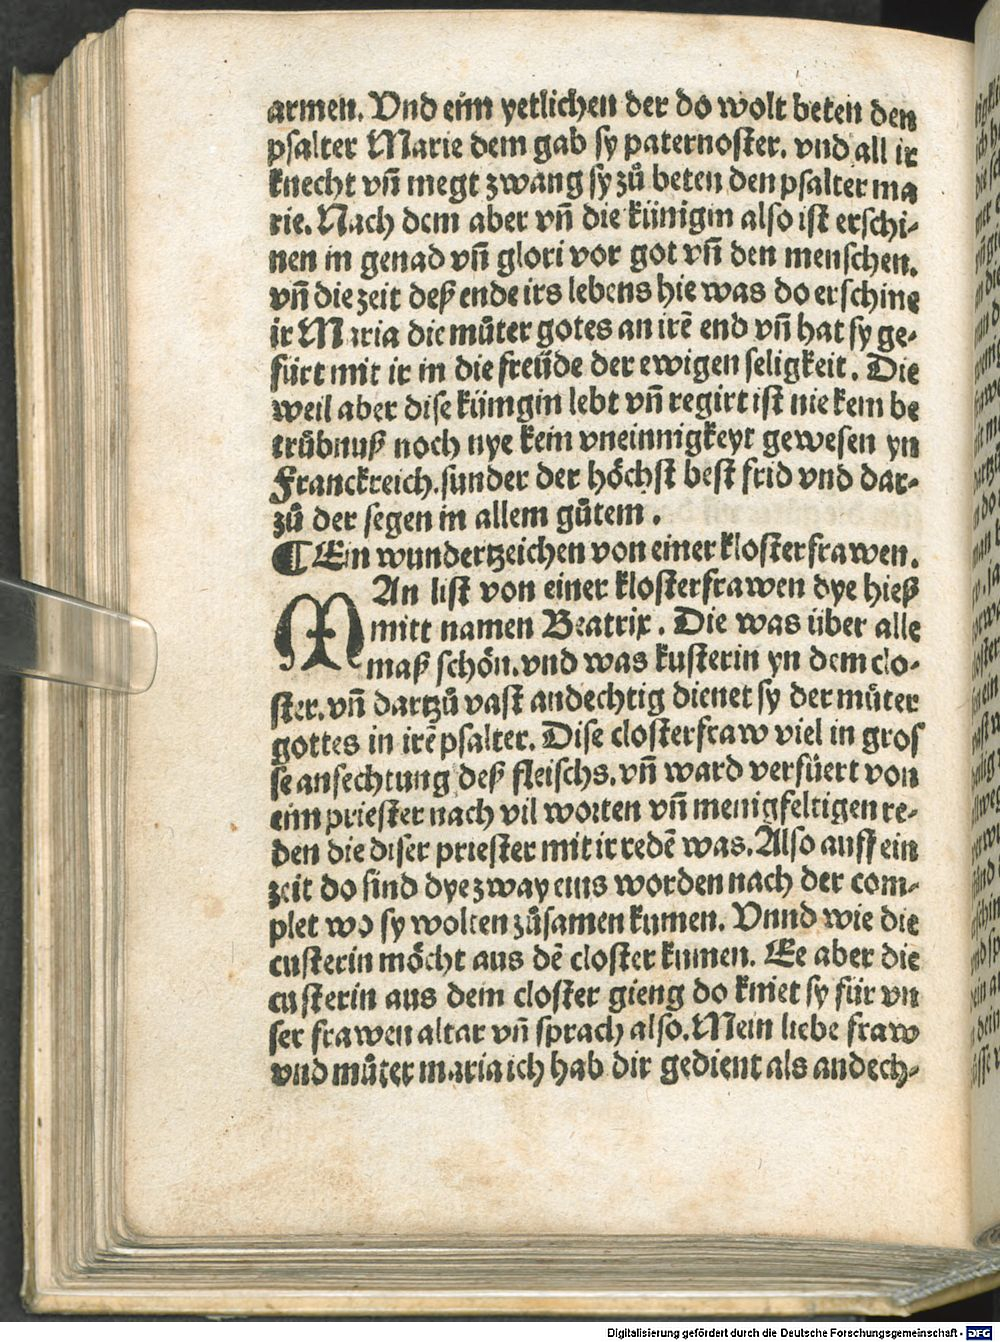 armen. Vnd eim yetlichen der do wolt beten den
psalter Marie dem gab sy paternoster. vnd all ir
knecht vn̄ megt zwang sy zů beten den psalter ma
rie. Nach dem aber vn̄ die künigin also ist erschi-
nen in genad vn̄ glori vor got vn̄ den menschen.
vn̄ die zeit deß ende irs lebens hie was do erschine
ir Maria die můter gotes an irē end vn̄ hat sy ge-
fürt mit ir in die freüde der ewigen seligkeit. Die
weil aber dise künigin lebt vn̄ regirt ist nie kein be
trübnuß noch nye kein vneinnigkeyt gewesen yn
Franckreich. sunder der höchst best frid vnd dar-
zů der segen in allem gůtem.
¶ Ein wundertzeichen von einer klosterfrawen.
MAn list von einer klosterfrawen dye hieß
mitt namen Beatrix. Die was über alle
maß schön. vnd was kusterin yn dem clo-
ster. vn̄ dartzů vast andechtig dienet sy der můter
gottes in irē psalter. Dise closterfraw viel in gros
se anfechtung deß fleischs. vn̄ ward verfüert von
eim priester nach vil worten vn̄ menigfeltigen re-
den die diser priester mit ir redē was. Also auff ein
zeit do sind dye zway eins worden nach der com-
plet wo sy wolten zůsamen kumen. Vnnd wie die
custerin möcht aus dē closter kumen. Ee aber die
custerin aus dem closter gieng do kniet sy für vn
ser frawen altar vn̄ sprach also. Mein liebe fraw
vnd můter maria ich hab dir gedient als andech-
Digitalisierung gefördert durch die Deutsche Forschungsgemeinschaft - DFG